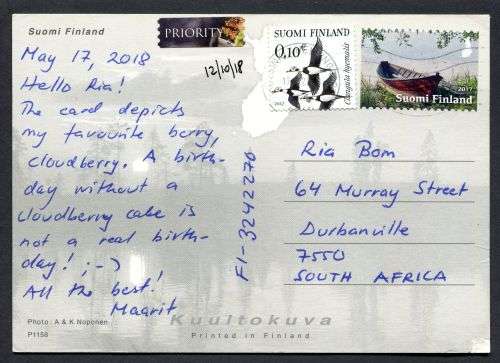 Suomi Finland
PRIORITY
12/10/18
SUOMI FINLAND
0,10€
Clangula hyemalis
2017
Suomi Finland
May 17, 2018
Hello Ria!
The card depicts
my favourite berry,
cloudberry. A birth-
day without a
cloudberry cake is
not a real birth-
day! ;-)
All the best!
Maarit
FI-3242270
Ria Bom
64 Murray Street
Durbanville
7550
SOUTH AFRICA
Photo: A & K Noponen
P1158
Kuultokuva
Printed in Finland